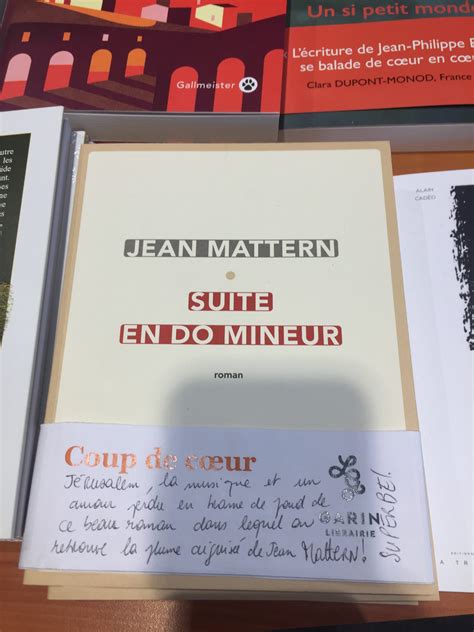 Gallmeister
Un si petit monde
L'écriture de Jean-Philippe B
se balade de cœur en cœu
Clara DUPONT-MONOD, France
utre
les
ède
nt.
pes
ne
ALAIN
CADÉO
JEAN MATTERN
SUITE
EN DO MINEUR
roman
Coup de cœur
Jérusalem, la musique et un
amour perdu en trame de fond de
ce beau roman dans lequel on
retrouve la plume aiguisée de Jean Mattern!
SUPERBE!
GARIN
LIBRAIRIE
A TR